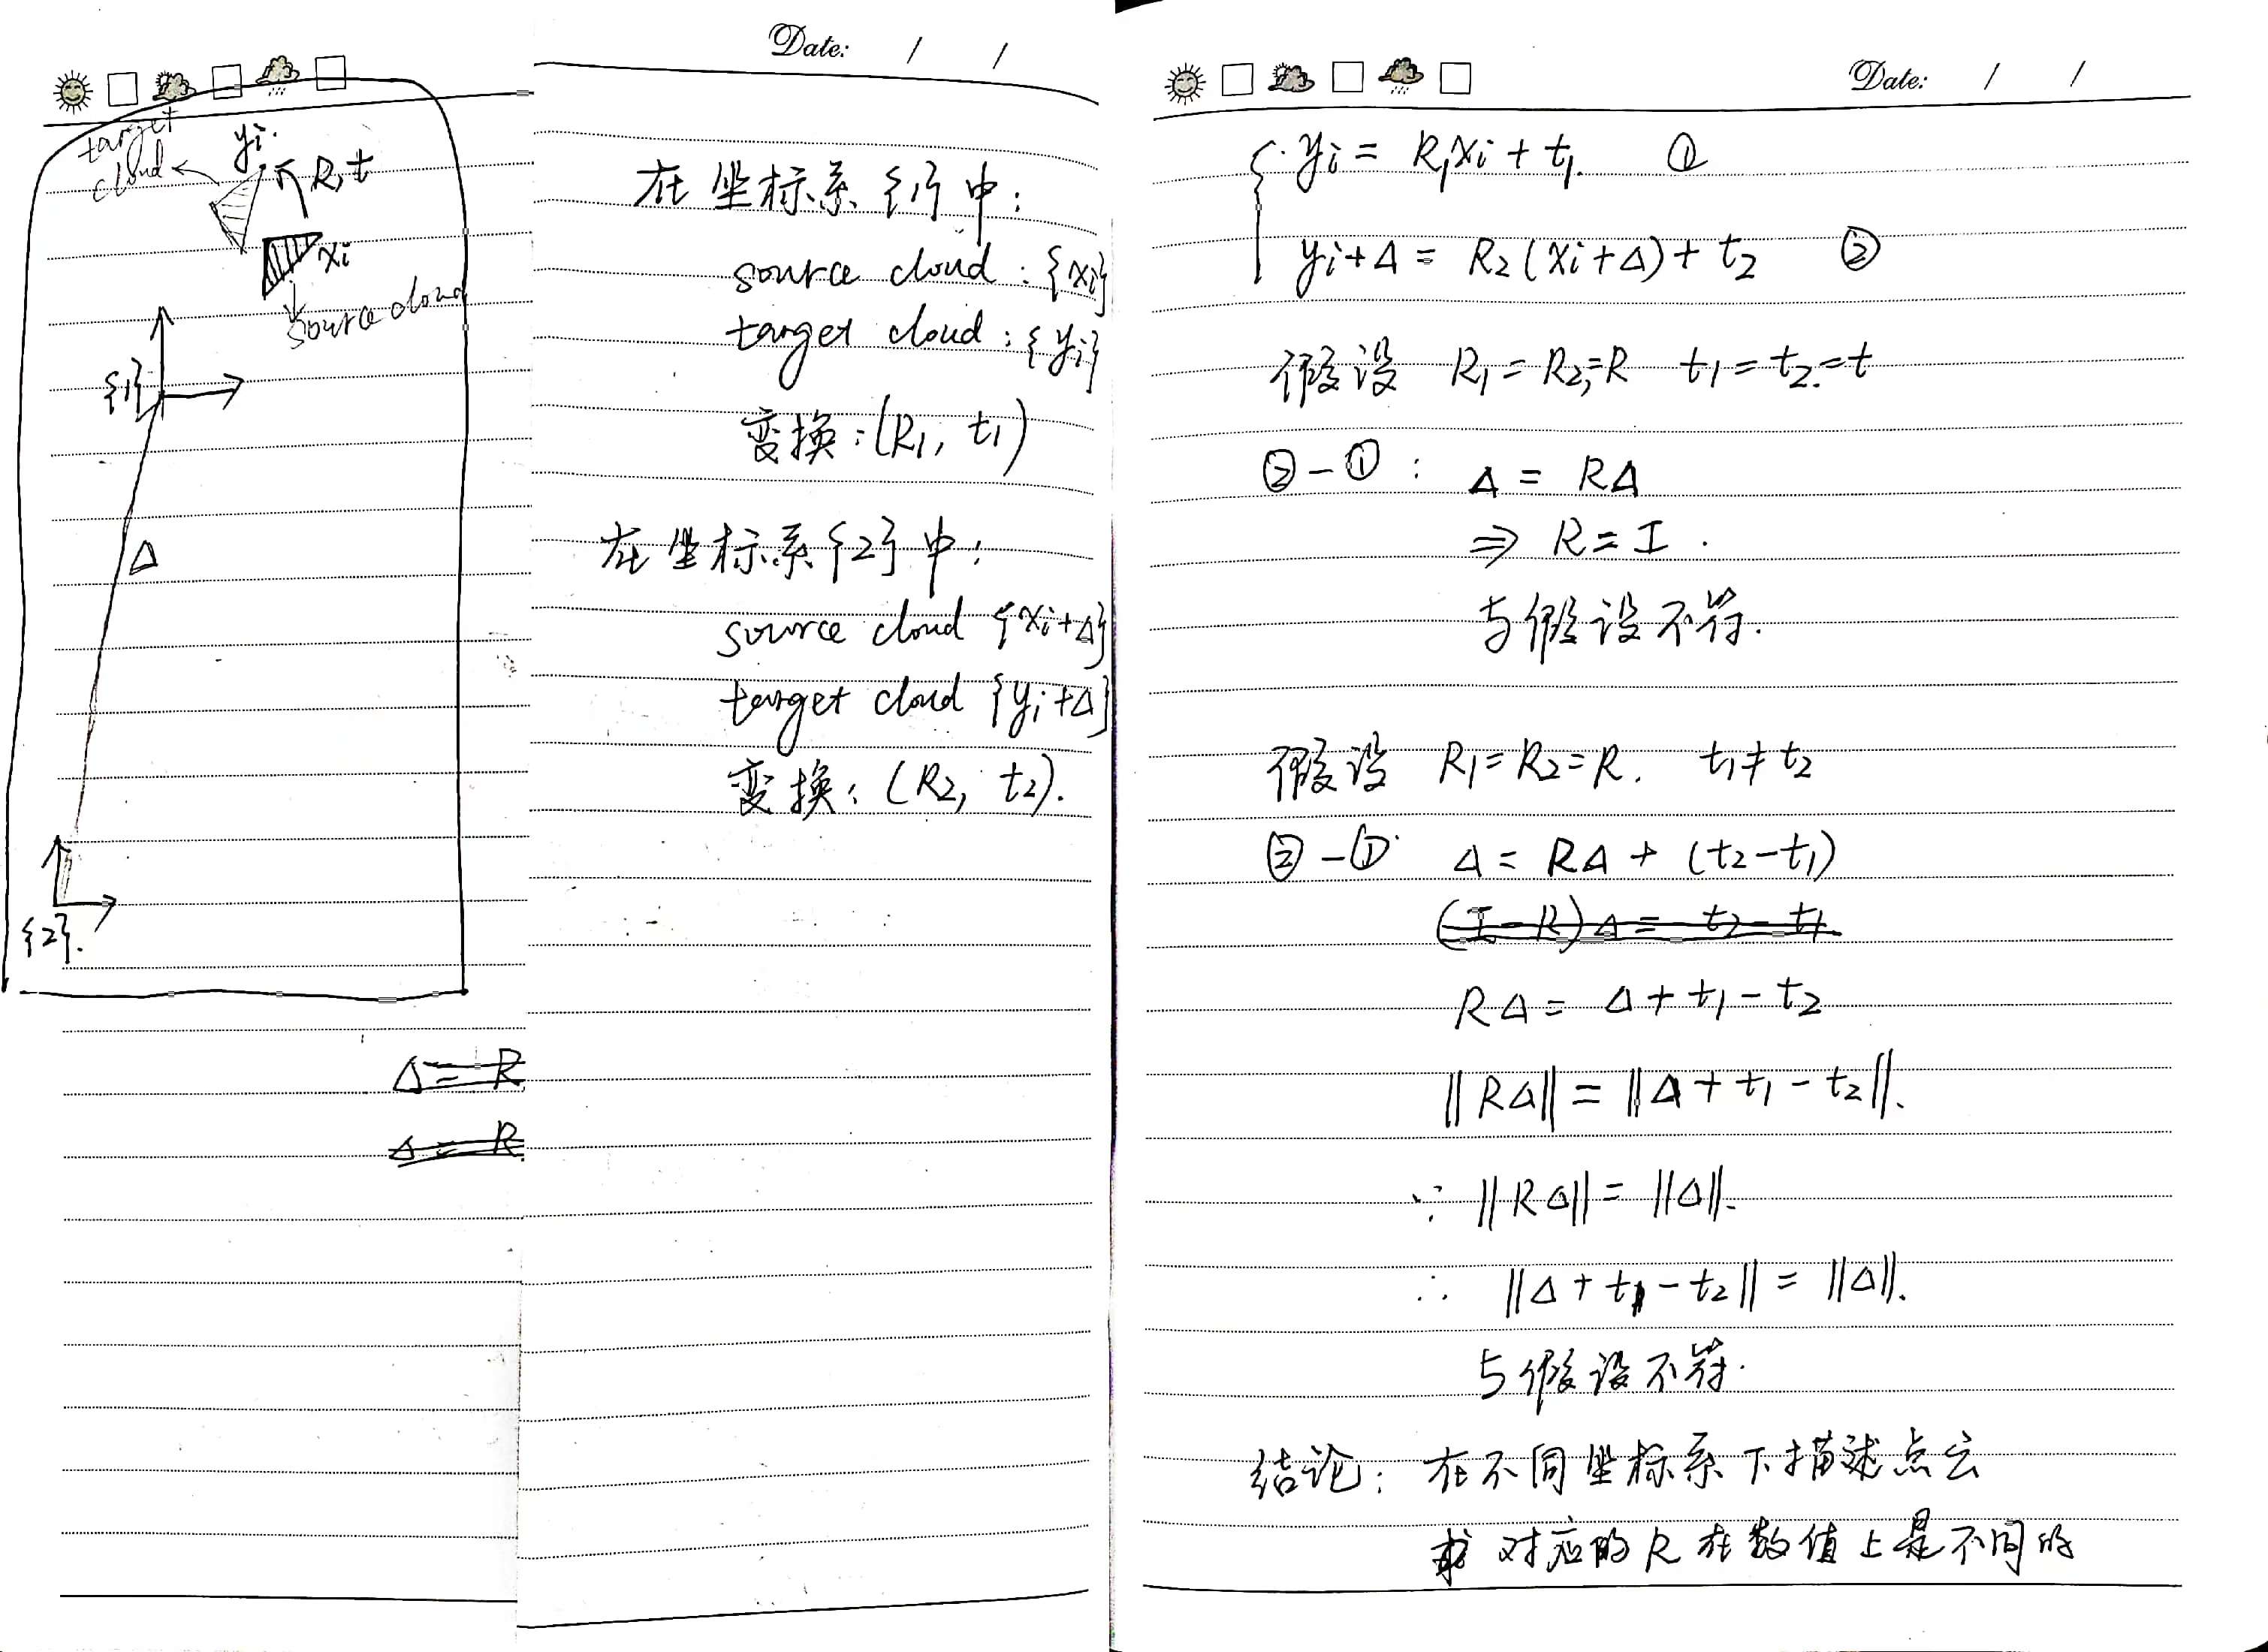 Date: / /
target
cloud
yi
R, t
xi
source cloud
{1}
Δ
{2}.
Δ = R
Δ = R
在坐标系{1}中:
source cloud : {xi}
target cloud : {yi}
变换:(R1, t1)
在坐标系{2}中:
source cloud {xi+Δ}
target cloud {yi+Δ}
变换: (R2, t2).
Date: / /
yi = R1xi + t1. ①
yi+Δ = R2(xi+Δ) + t2 ②
假设 R1 = R2 = R t1 = t2 = t
②-① : Δ = RΔ
⇒ R = I .
与假设不符.
假设 R1 = R2 = R. t1 ≠ t2
②-① Δ = RΔ + (t2-t1)
(I-R)Δ = t2-t1
RΔ = Δ + t1 - t2
||RΔ|| = ||Δ + t1 - t2||.
∵ ||RΔ|| = ||Δ||.
∴ ||Δ + t1 - t2|| = ||Δ||.
与假设不符.
结论: 在不同坐标系下描述点云
对应的R在数值上是不同的